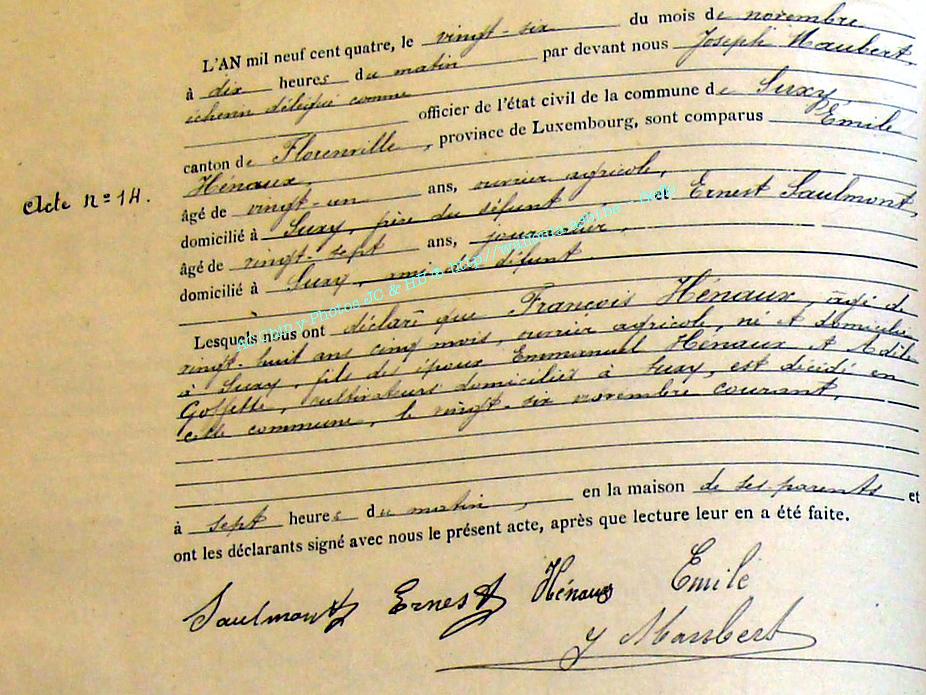 L'AN mil neuf cent quatre, le vingt-six du mois de novembre
à dix heures du matin par devant nous Joseph Maubert,
échevin délégué comme officier de l'état civil de la commune de Suxy
canton de Florenville, province de Luxembourg, sont comparus Émile
Hénaux,
Acte nº 14.
âgé de vingt-un ans, ouvrier agricole,
domicilié à Suxy, frère du défunt et Ernest Saulmont,
âgé de vingt-sept ans, journalier,
domicilié à Suxy, ami du défunt.
Lesquels nous ont déclaré que François Hénaux, âgé de
vingt-huit ans cinq mois, ouvrier agricole, né et domicilié
à Suxy, fils des époux Emmanuel Hénaux et Adèle
Goffette, cultivateurs domiciliés à Suxy, est décédé en
cette commune, le vingt-six novembre courant,
à sept heures du matin, en la maison de ses parents et
ont les déclarants signé avec nous le présent acte, après que lecture leur en a été faite.
Saulmont Ernest Hénaux Emile
J Maubert
Photos JC & HB © http://